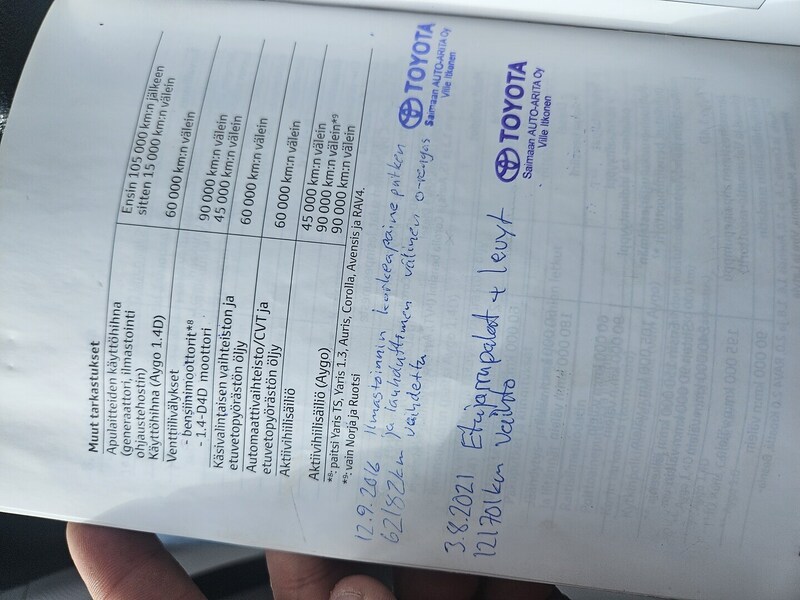 Muut tarkastukset
Apulaitteiden käyttöhihna
(generaattori, ilmastointi
ohjaustehostin)
Käyttöhihna (Aygo 1.4D)
Ensin 105 000 km:n jälkeen
sitten 15 000 km:n välein
Venttiilivälykset
- bensiinimoottorit*8
- 1.4-D4D moottori
60 000 km:n välein
90 000 km:n välein
45 000 km:n välein
Käsivalintaisen vaihteiston ja
etuvetopyörästön öljy
60 000 km:n välein
Automaattivaihteisto/CVT ja
etuvetopyörästön öljy
60 000 km:n välein
Aktiivihiilisäiliö
45 000 km:n välein
90 000 km:n välein*9
Aktiivihiilisäiliö (Aygo)
90 000 km:n välein
*8- paitsi Yaris TS, Yaris 1.3, Auris, Corolla, Avensis ja RAV4.
*9- vain Norja ja Ruotsi
12.9.2016 Ilmastoinnin korkeapaine putken
62182km ja lauhduttimen välinen o-rengas
vaihdettu
TOYOTA
Saimaan AUTO-ARITA Oy
Ville Itkonen
3.8.2021 Etujarrupalat + levyt
121701km vaihto
TOYOTA
Saimaan AUTO-ARITA Oy
Ville Itkonen